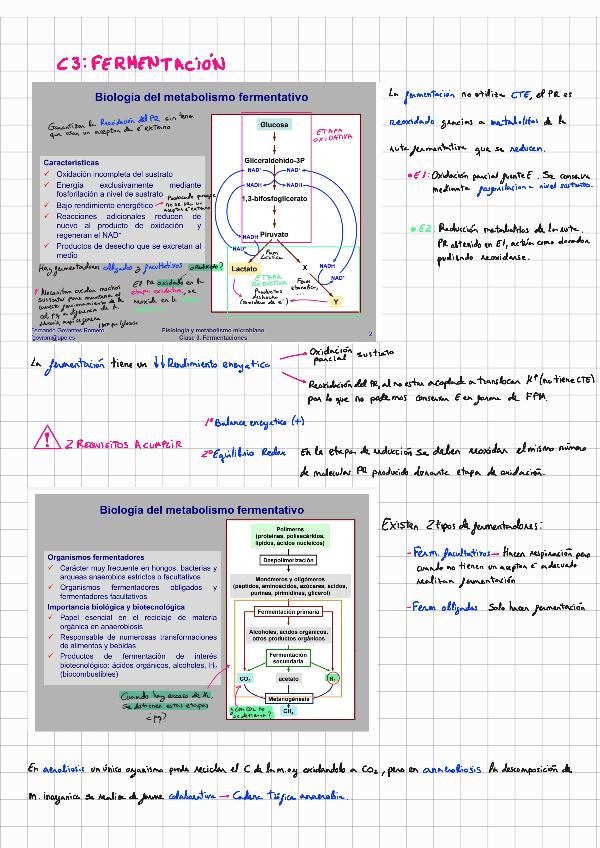 C3: FERMENTACIÓN
Biología del metabolismo fermentativo
Garantizan la Reoxidación del PR sin tener
que usar un aceptor de e⁻ externo
Características
✓ Oxidación incompleta del sustrato
✓ Energía exclusivamente mediante
fosforilación a nivel de sustrato
✓ Bajo rendimiento energético
✓ Reacciones adicionales reducen de
nuevo al producto de oxidación y
regeneran el NAD⁺
✓ Productos de desecho que se excretan al
medio
Hay fermentadores obligados y facultativos
El PR oxidado en la
etapa oxidativa, se
reoxida en la
Glucosa
ETAPA
OXIDATIVA
Gliceraldehído-3P
NAD⁺ NAD⁺
NADH NADH
1,3-bifosfoglicerato
Piruvato
NADH
NAD⁺
Ferm
Láctica
Lactato
X
NADH
NAD⁺
ETAPA
REDUCTIVA
Ferm
etanólica,
...
Productos
deshecho
(aceptores de e⁻)
Y
Fernando Govantes Romero
govrom@upo.es
Fisiología y metabolismo microbiano
Clase 3. Fermentaciones
2
La fermentación no utiliza CTE, el PR es
reoxidado gracias a metabolitos de la
ruta fermentativa que se reducen.
• E1: Oxidación parcial fuente E. Se conserva
mediante fosforilación a nivel sustrato.
• E2: Reducción metabolitos de la ruta.
PR obtenido en E1, actúa como donador
pudiendo reoxidarse.
La fermentación tiene un ↓↓ Rendimiento energético
→ Oxidación parcial sustrato
→ Reoxidación del PR, al no estar acoplada a translocar H⁺ (no tiene CTE)
por lo que no podemos conservar E en forma de FPM.
2 REQUISITOS A CUMPLIR
1º Balance energético (+)
2º Equilibrio Redox En la etapa de reducción se deben reoxidar el mismo número
de moléculas PR producido durante etapa de oxidación.
Biología del metabolismo fermentativo
Organismos fermentadores
✓ Carácter muy frecuente en hongos, bacterias y
arqueas anaerobios estrictos o facultativos
✓ Organismos fermentadores obligados y
fermentadores facultativos
Importancia biológica y biotecnológica
✓ Papel esencial en el reciclaje de materia
orgánica en anaerobiosis
✓ Responsable de numerosas transformaciones
de alimentos y bebidas
✓ Productos de fermentación de interés
biotecnológico: ácidos orgánicos, alcoholes, H₂
(biocombustibles)
Cuando hay exceso de H₂
se detienen estas etapas
¿pq?
Polímeros
(proteínas, polisacáridos,
lípidos, ácidos nucleicos)
Despolimerización
Monómeros y oligómeros
(péptidos, aminoácidos, azúcares, ácidos,
purinas, pirimidinas, glicerol)
Fermentación primaria
Alcoholes, ácidos orgánicos,
otros productos orgánicos
Fermentación
secundaria
CO₂ acetato H₂
Metanogénesis
CH₄
¿Con CO₂ no
se detiene?
Existen 2 tipos de fermentadores:
- Ferm. facultativos → Hacen respiración pero
cuando no tienen un aceptor e⁻ adecuado
realizan fermentación
- Ferm obligados Solo hacen fermentación
En aerobiosis un único organismo puede reciclar el C de la m.o y oxidándolo a CO₂, pero en anaerobiosis la descomposición de
M. inorgánica se realiza de forma colaborativa → Cadena Trófica anaerobia.